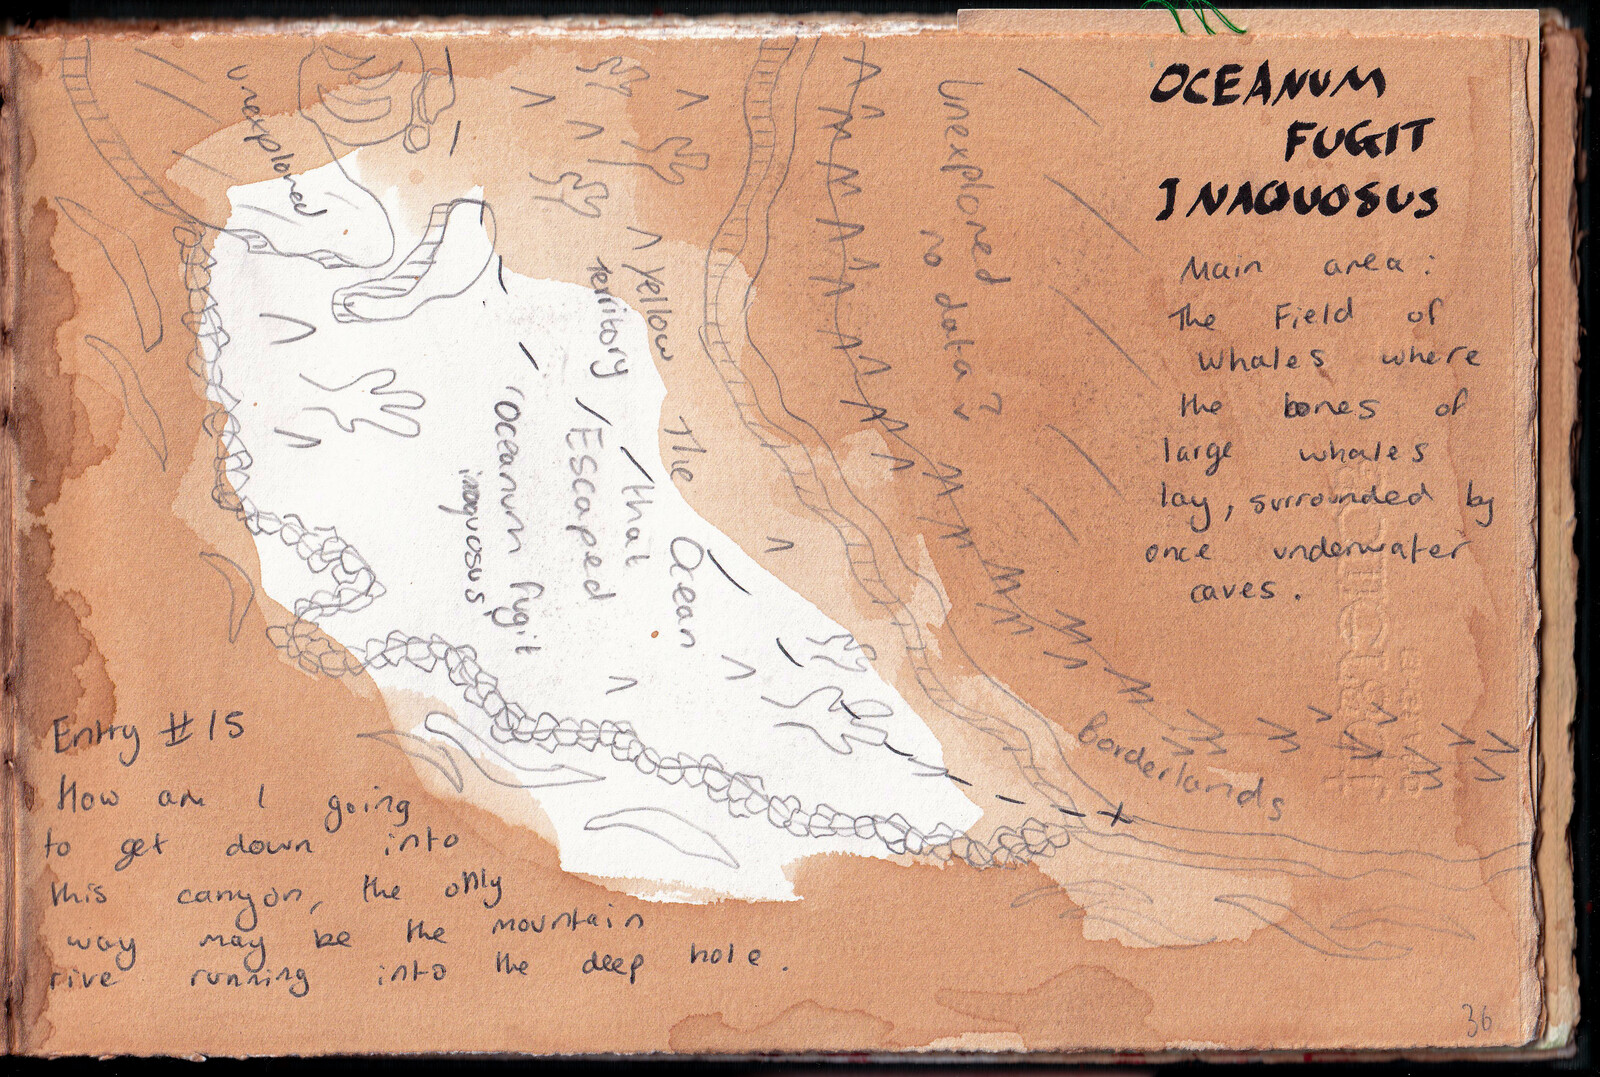 OCEANUM
FUGIT
INAQUOSUS
Main area:
The Field of
Whales where
the bones of
large whales
lay, surrounded by
once underwater
caves.
unexplored
Unexplored
no data?
Yellow
territory
The Ocean
/that
/Escaped
'Oceanum fugit
inaquosus'
Borderlands
Entry #15
How am I going
to get down into
this canyon, the only
way may be the mountain
rive running into the deep hole.
36